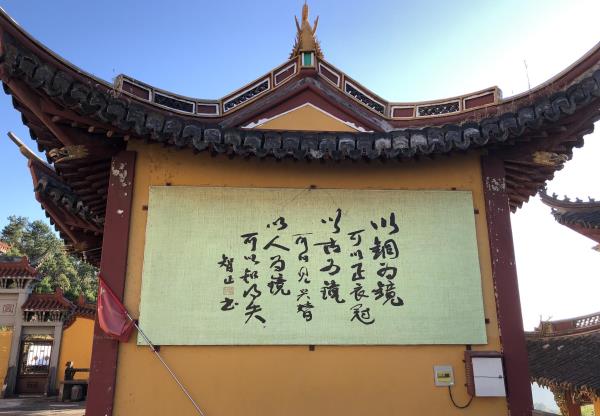 以銅为镜
可以正衣冠
以古为镜
可以见兴替
以人为镜
可以知得失
智山 书